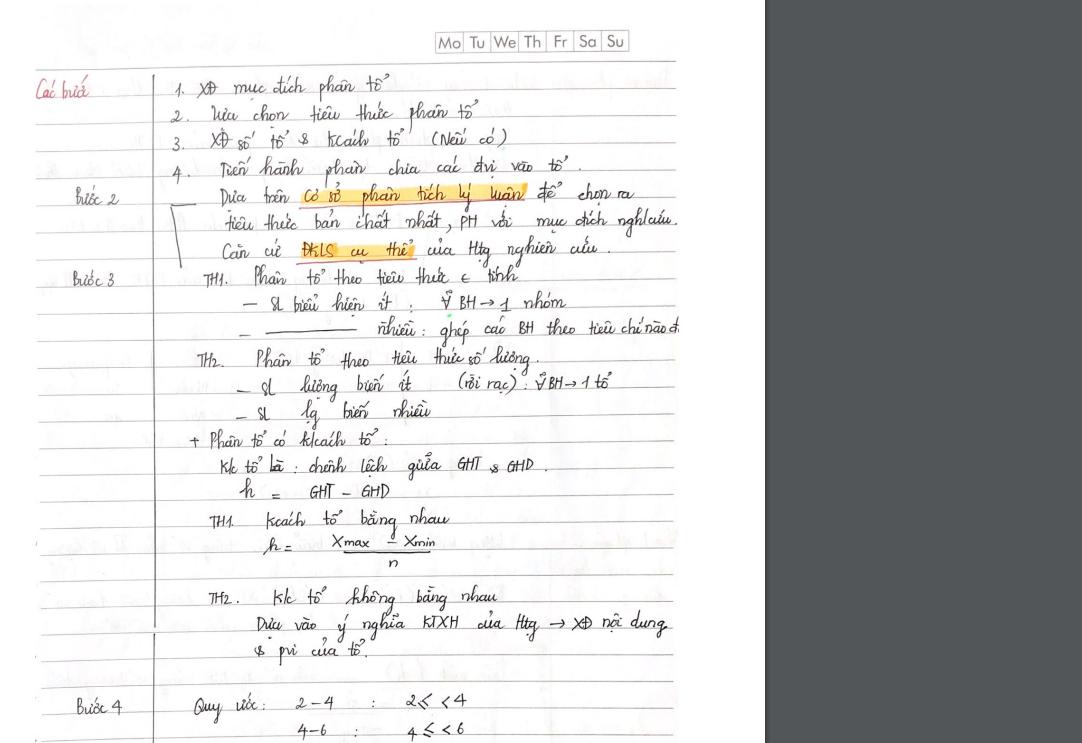 Mo Tu We Th Fr Sa Su
Các bước 1. XĐ mục đích phân tổ
2. Lựa chọn tiêu thức phân tổ
3. XĐ số tổ & kcách tổ (Nếu có)
4. Tiến hành phân chia các đvị vào tổ.
Bước 2 Dựa trên cơ sở phân tích lý luận để chọn ra
tiêu thức bản chất nhất, PH với mục đích nghcứu.
Căn cứ ĐKLS cụ thể của Htg nghiên cứu.
Bước 3 TH1. Phân tổ theo tiêu thức t tính
– SL biểu hiện ít : ∀ BH → 1 nhóm
– ———— nhiều : ghép các BH theo tiêu chí nào đ
TH2. Phân tổ theo tiêu thức số lượng.
– SL lượng biến ít (rời rạc) : ∀ BH → 1 tổ
– SL lg biến nhiều
+ Phân tổ có k/cách tổ :
K/c tổ là : chênh lệch giữa GHT & GHD.
h = GHT – GHD
TH1. kcách tổ bằng nhau
h = Xmax – Xmin
n
TH2. K/c tổ không bằng nhau
Dựa vào ý nghĩa KTXH của Htg → XĐ nội dung
& pvi của tổ.
Bước 4 Quy ước : 2–4 : 2≤ <4
4–6 : 4≤ <6